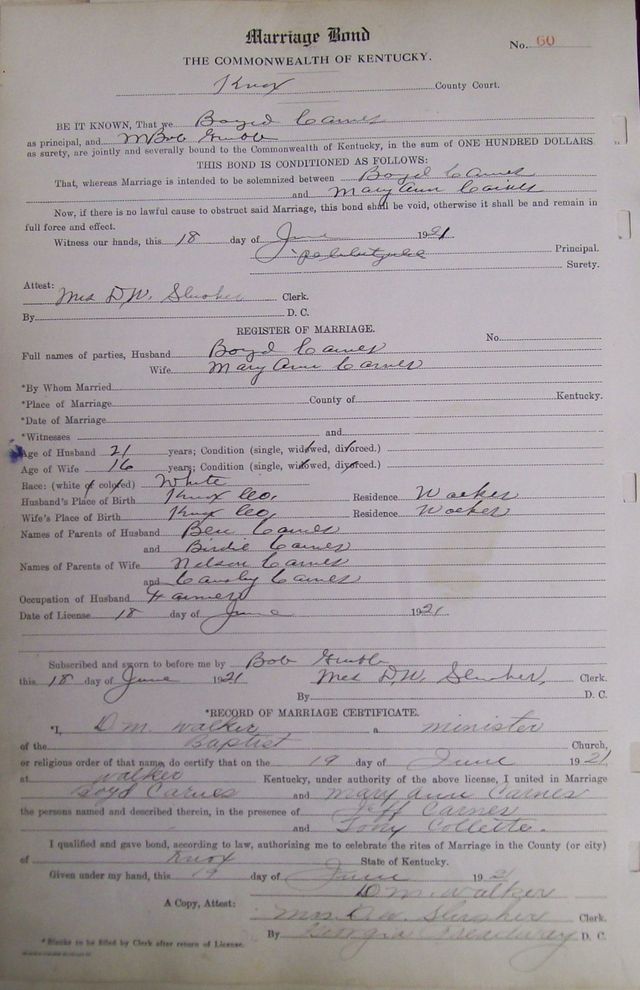 Marriage Bond
No. 60
THE COMMONWEALTH OF KENTUCKY.
Knox County Court.
BE IT KNOWN, That we Boyd Carnes
as principal, and Bob
as surety, are jointly and severally bound to the Commonwealth of Kentucky, in the sum of ONE HUNDRED DOLLARS.
THIS BOND IS CONDITIONED AS FOLLOWS:
That, whereas Marriage is intended to be solemnized between Boyd Carnes
and Mary Ann Carnes
Now, if there is no lawful cause to obstruct said Marriage, this bond shall be void, otherwise it shall be and remain in
full force and effect.
Witness our hands, this 18 day of June 1921
Principal.
Surety.
Attest:
Mrs D.W. Slusher Clerk.
By D. C.
REGISTER OF MARRIAGE.
No.
Full names of parties, Husband Boyd Carnes
Wife Mary Ann Carnes
*By Whom Married
*Place of Marriage County of Kentucky.
*Date of Marriage
*Witnesses and
Age of Husband 21 years; Condition (single, widowed, divorced.)
Age of Wife 16 years; Condition (single, widowed, divorced.)
Race: (white or colored) White
Husband's Place of Birth Knox Co. Residence Walker
Wife's Place of Birth Knox Co. Residence Walker
Names of Parents of Husband Ben Carnes
and Birdie Carnes
Names of Parents of Wife Nelson Carnes
and Carnes
Occupation of Husband Farmer
Date of License 18 day of June 1921
Subscribed and sworn to before me by Bob
this 18 day of June 1921 Mrs D.W. Slusher, Clerk.
By D. C.
*RECORD OF MARRIAGE CERTIFICATE.
*I, D.M. Walker a minister
of the Baptist Church,
or religious order of that name, do certify that on the 19 day of June 1921
at Walker Kentucky, under authority of the above license, I united in Marriage
Boyd Carnes and Mary Ann Carnes
the persons named and described therein, in the presence of Jeff Carnes
and Tony Collette.
I qualified and gave bond, according to law, authorizing me to celebrate the rites of Marriage in the County (or city)
of Knox State of Kentucky.
Given under my hand, this 19 day of June 1921
D.M. Walker
A Copy, Attest: Mrs. D.W. Slusher Clerk.
By Georgia Treadway D. C.
*Blanks to be filled by Clerk after return of License.